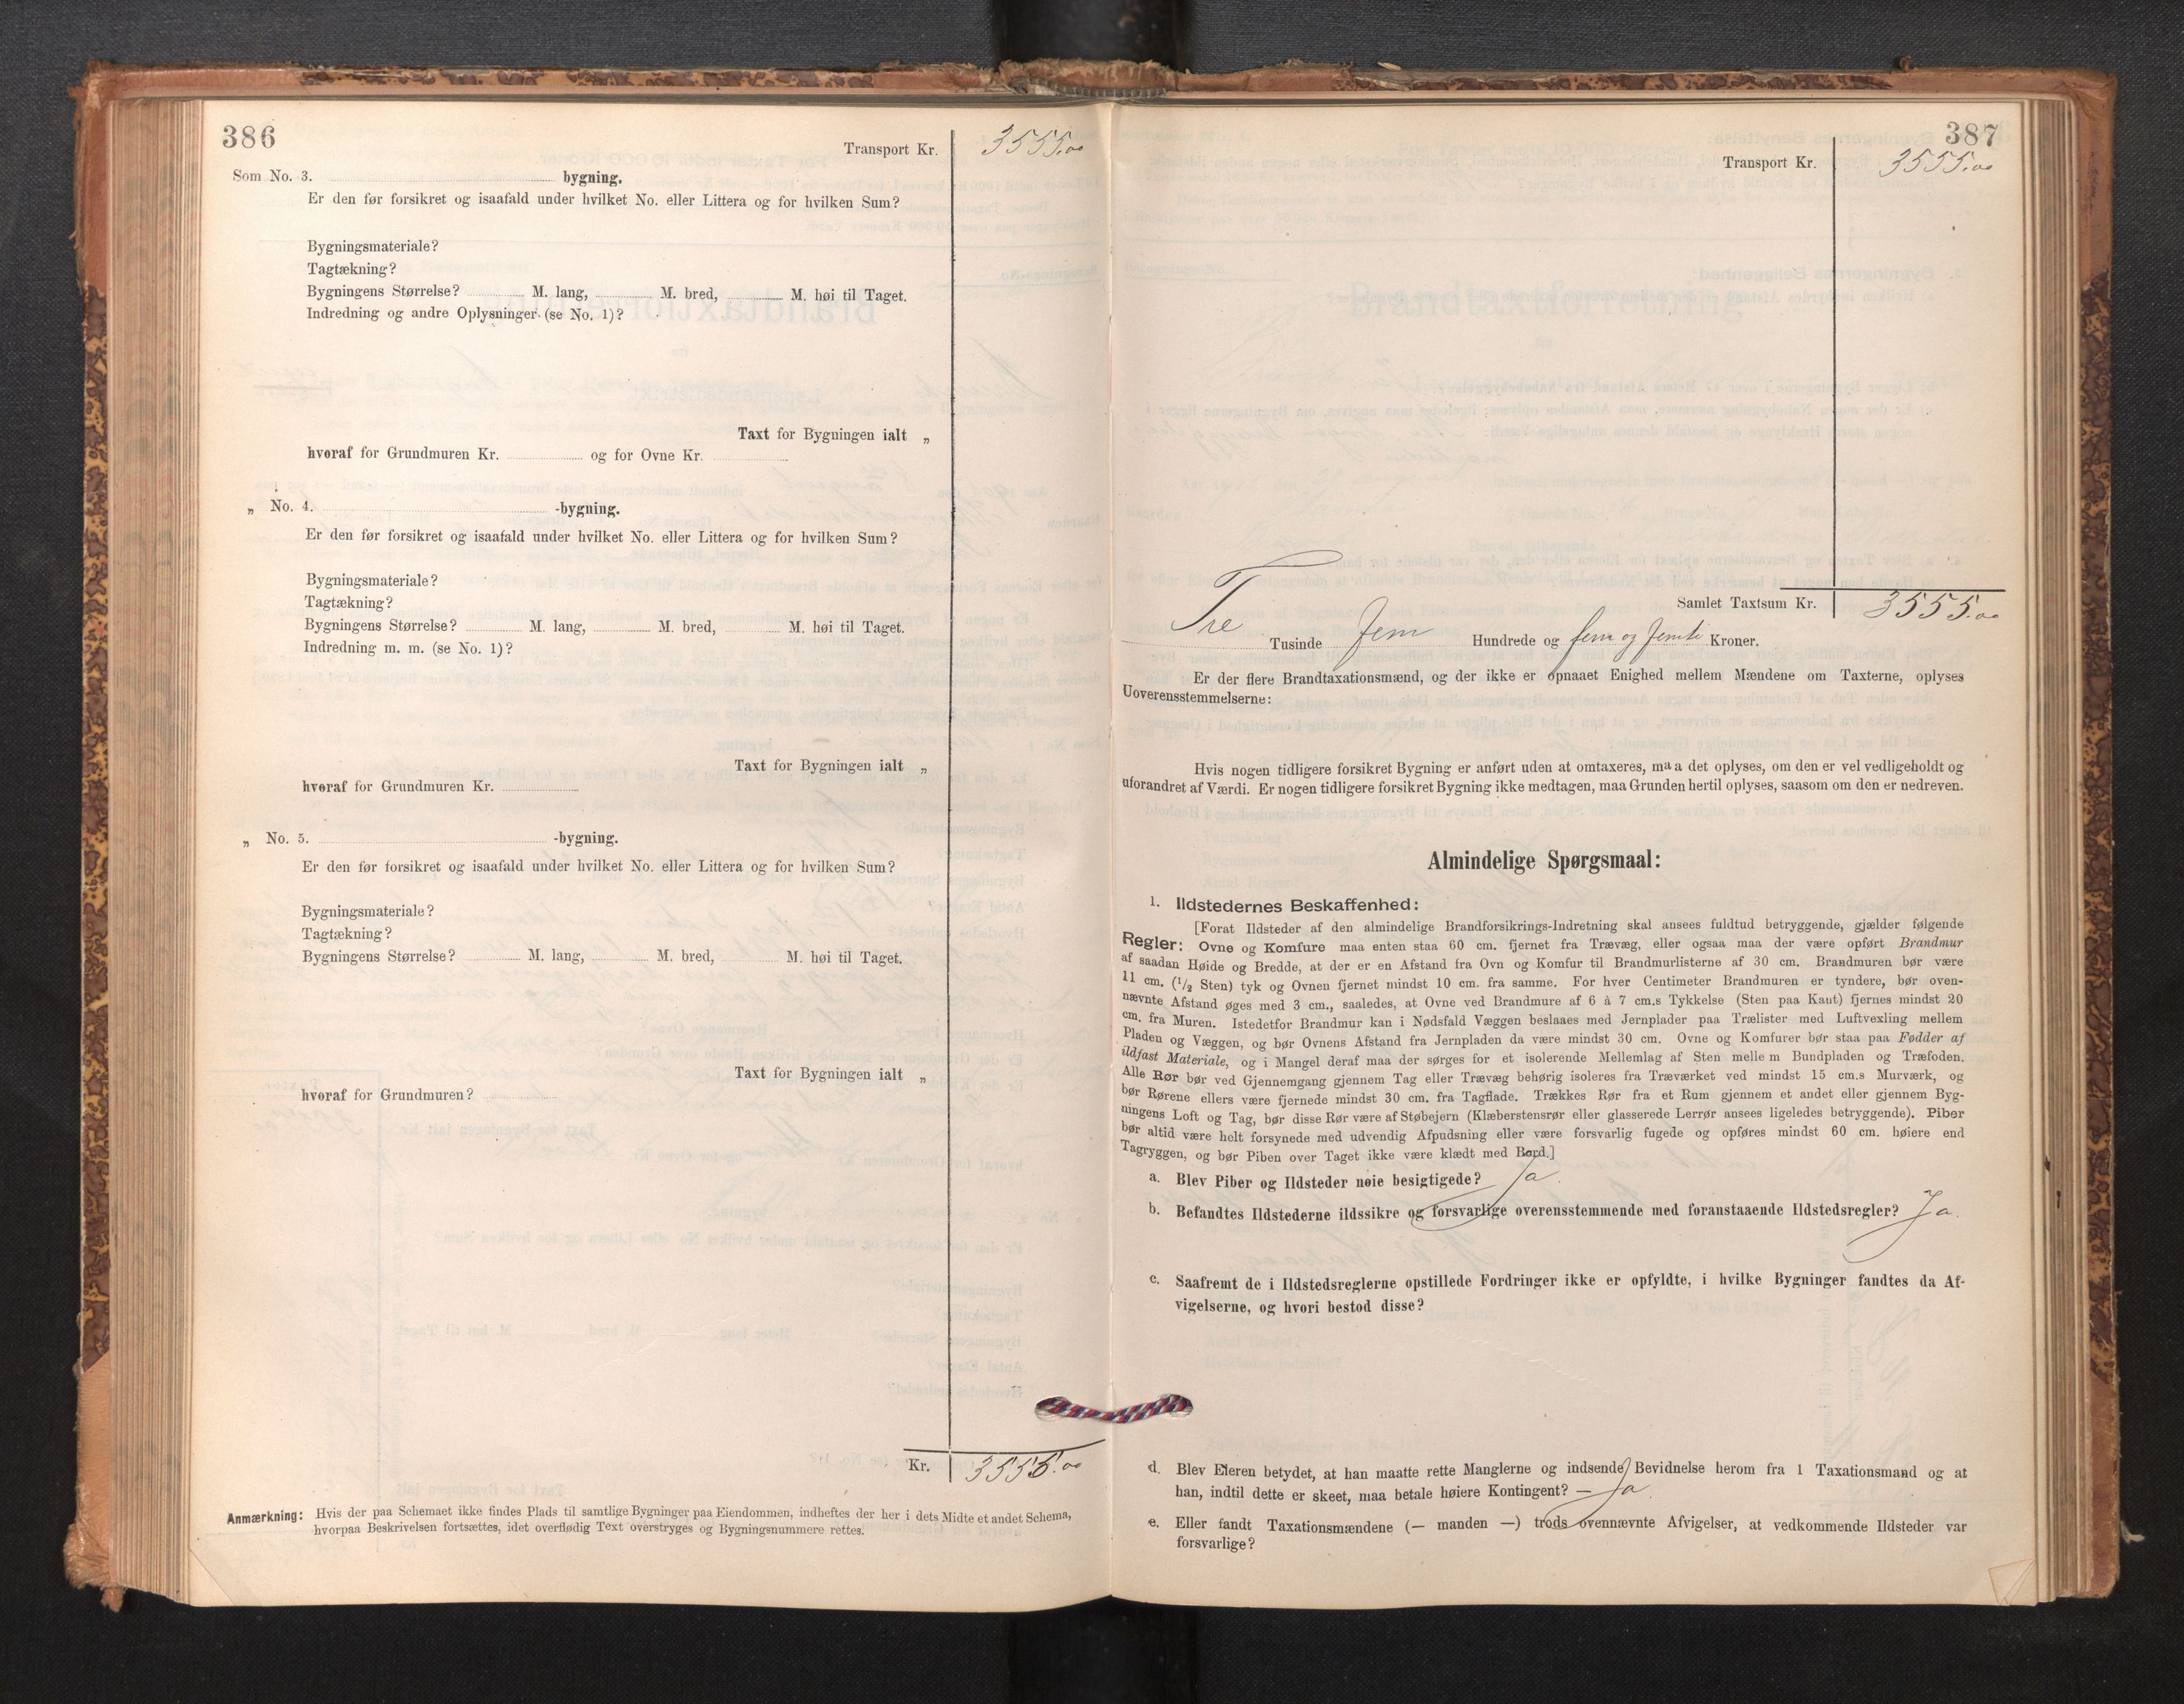 386
Transport Kr. 3555.00
Som No. 3. bygning.
Er den før forsikret og isaafald under hvilket No. eller Littera og for hvilken Sum?
Bygningsmateriale?
Tagtækning?
Bygningens Størrelse? M. lang, M. bred, M. høi til Taget.
Indredning og andre Oplysninger (se No. 1)?
Taxt for Bygningen ialt „
hvoraf for Grundmuren Kr. og for Ovne Kr.
„ No. 4. -bygning.
Er den før forsikret og isaafald under hvilket No. eller Littera og for hvilken Sum?
Bygningsmateriale?
Tagtækning?
Bygningens Størrelse? M. lang, M. bred, M. høi til Taget.
Indredning m. m. (se No. 1)?
Taxt for Bygningen ialt „
hvoraf for Grundmuren Kr.
„ No. 5. -bygning.
Er den før forsikret og isaafald under hvilket No. eller Littera og for hvilken Sum?
Bygningsmateriale?
Tagtækning?
Bygningens Størrelse? M. lang, M. bred, M. høi til Taget.
Taxt for Bygningen ialt „
hvoraf for Grundmuren?
Kr. 3555.00
Anmærkning: Hvis der paa Schemaet ikke findes Plads til samtlige Bygninger paa Eiendommen, indheftes der her i dets Midte et andet Schema,
hvorpaa Beskrivelsen fortsættes, idet overflødig Text overstryges og Bygningsnummere rettes.
387
Transport Kr. 3555.00
Samlet Taxtsum Kr. 3555.00
Tre Tusinde fem Hundrede og fem og femti Kroner.
Er der flere Brandtaxationsmænd, og der ikke er opnaaet Enighed mellem Mændene om Taxterne, oplyses
Uoverensstemmelserne:
Hvis nogen tidligere forsikret Bygning er anført uden at omtaxeres, maa det oplyses, om den er vel vedligeholdt og
uforandret af Værdi. Er nogen tidligere forsikret Bygning ikke medtagen, maa Grunden hertil oplyses, saasom om den er nedreven.
Almindelige Spørgsmaal:
1. Ildstedernes Beskaffenhed:
[Forat Ildsteder af den almindelige Brandforsikrings-Indretning skal ansees fuldtud betryggende, gjælder følgende
Regler: Ovne og Komfure maa enten staa 60 cm. fjernet fra Trævæg, eller ogsaa maa der være opført Brandmur
af saadan Høide og Bredde, at der er en Afstand fra Ovn og Komfur til Brandmurlisterne af 30 cm. Brandmuren bør være
11 cm. (1/2 Sten) tyk og Ovnen fjernet mindst 10 cm. fra samme. For hver Centimeter Brandmuren er tyndere, bør oven-
nævnte Afstand øges med 3 cm., saaledes, at Ovne ved Brandmure af 6 à 7 cm.s Tykkelse (Sten paa Kant) fjernes mindst 20
cm. fra Muren. Istedetfor Brandmur kan i Nødsfald Væggen beslaaes med Jernplader paa Trælister med Luftvexling mellem
Pladen og Væggen, og bør Ovnens Afstand fra Jernpladen da være mindst 30 cm. Ovne og Komfurer bør staa paa Fødder af
ildfast Materiale, og i Mangel deraf maa der sørges for et isolerende Mellemlag af Sten mellem Bundpladen og Træfoden.
Alle Rør bør ved Gjennemgang gjennem Tag eller Trævæg behørig isoleres fra Træværket ved mindst 15 cm.s Murværk, og
bør Rørene ellers være fjernede mindst 30 cm. fra Tagflade. Trækkes Rør fra et Rum gjennem et andet eller gjennem Byg-
ningens Loft og Tag, bør disse Rør være af Støbejern (Klæberstensrør eller glasserede Lerrør ansees ligeledes betryggende). Piber
bør altid være helt forsynede med udvendig Afpudsning eller være forsvarlig fugede og opføres mindst 60 cm. høiere end
Tagryggen, og bør Piben over Taget ikke være klædt med Bord.]
a. Blev Piber og Ildsteder nøie besigtigede? Ja.
b. Befandtes Ildstederne ildssikre og forsvarlige overensstemmende med foranstaaende Ildstedsregler? Ja.
c. Saafremt de i Ildstedsreglerne opstillede Fordringer ikke er opfyldte, i hvilke Bygninger fandtes da Af-
vigelserne, og hvori bestod disse?
d. Blev Eieren betydet, at han maatte rette Manglerne og indsende Bevidnelse herom fra 1 Taxationsmand og at
han, indtil dette er skeet, maa betale høiere Kontingent? — Ja.
e. Eller fandt Taxationsmændene (— manden —) trods ovennævnte Afvigelser, at vedkommende Ildsteder var
forsvarlige?